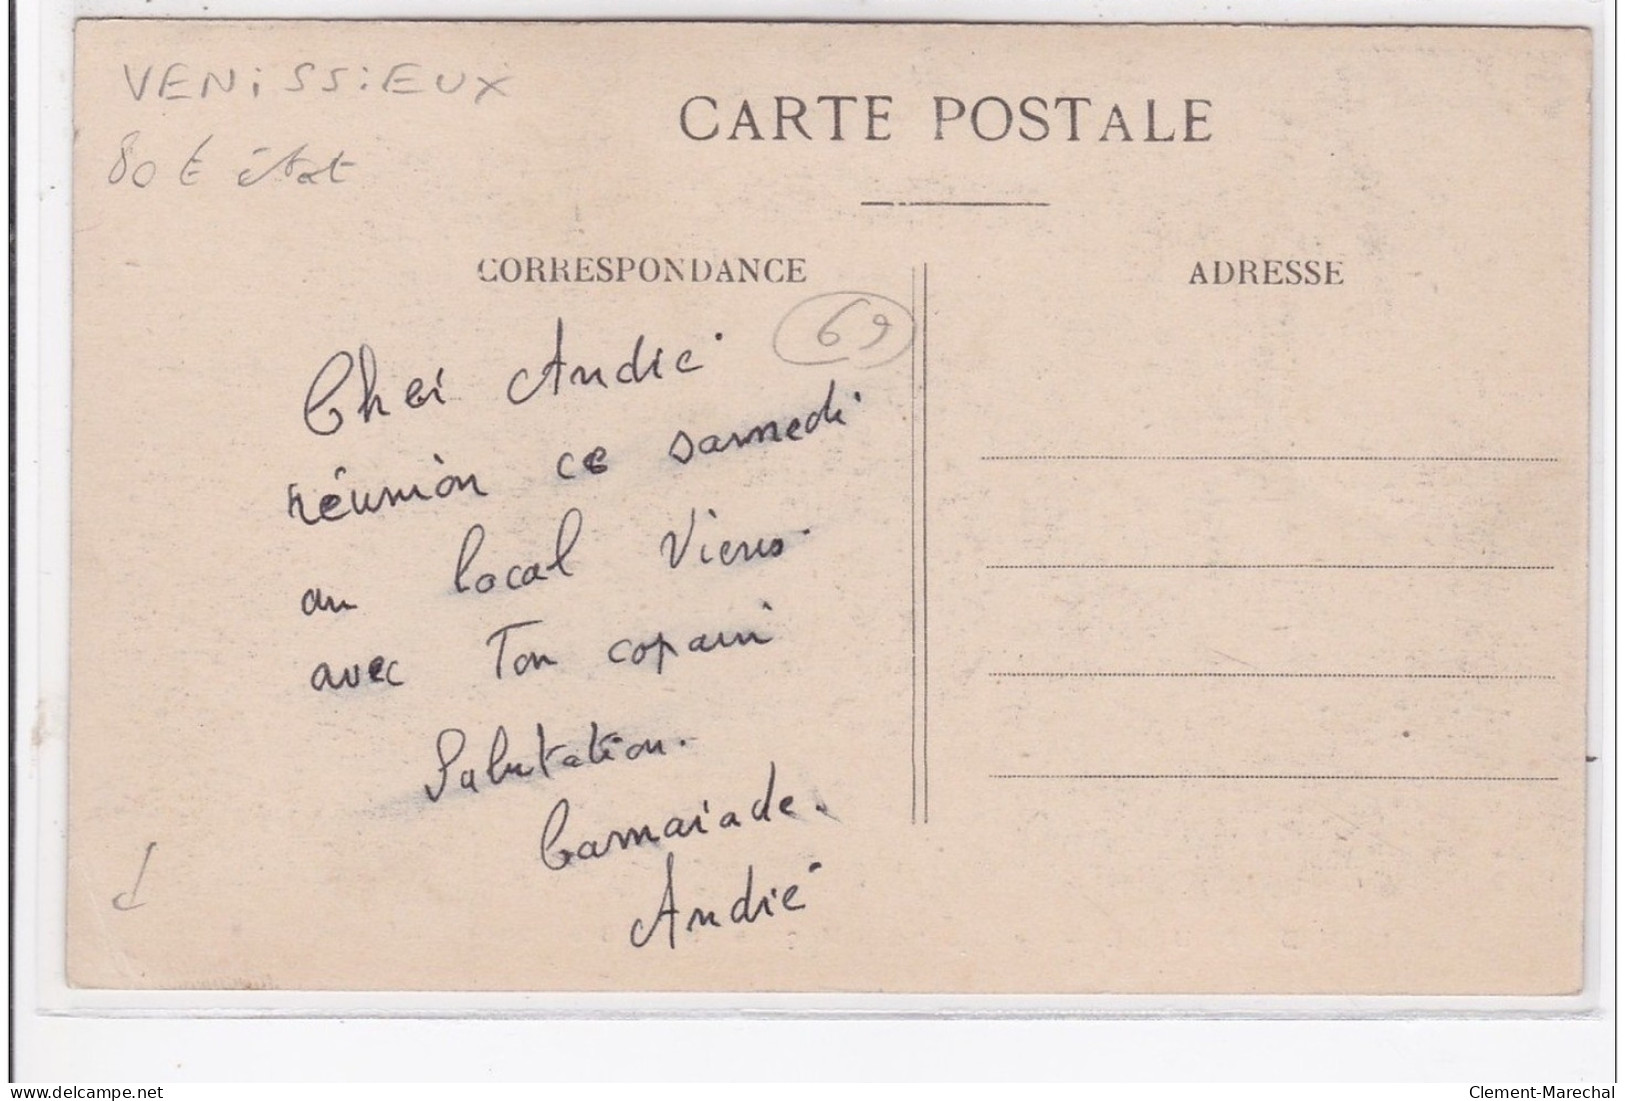 VENISSIEUX
80 € état
CARTE POSTALE
CORRESPONDANCE
ADRESSE
69
Cher André
réunion ce samedi
au local Viens
avec Ton copain
Salutation.
Camarade.
André
delcampe.net
Clement-Marechal